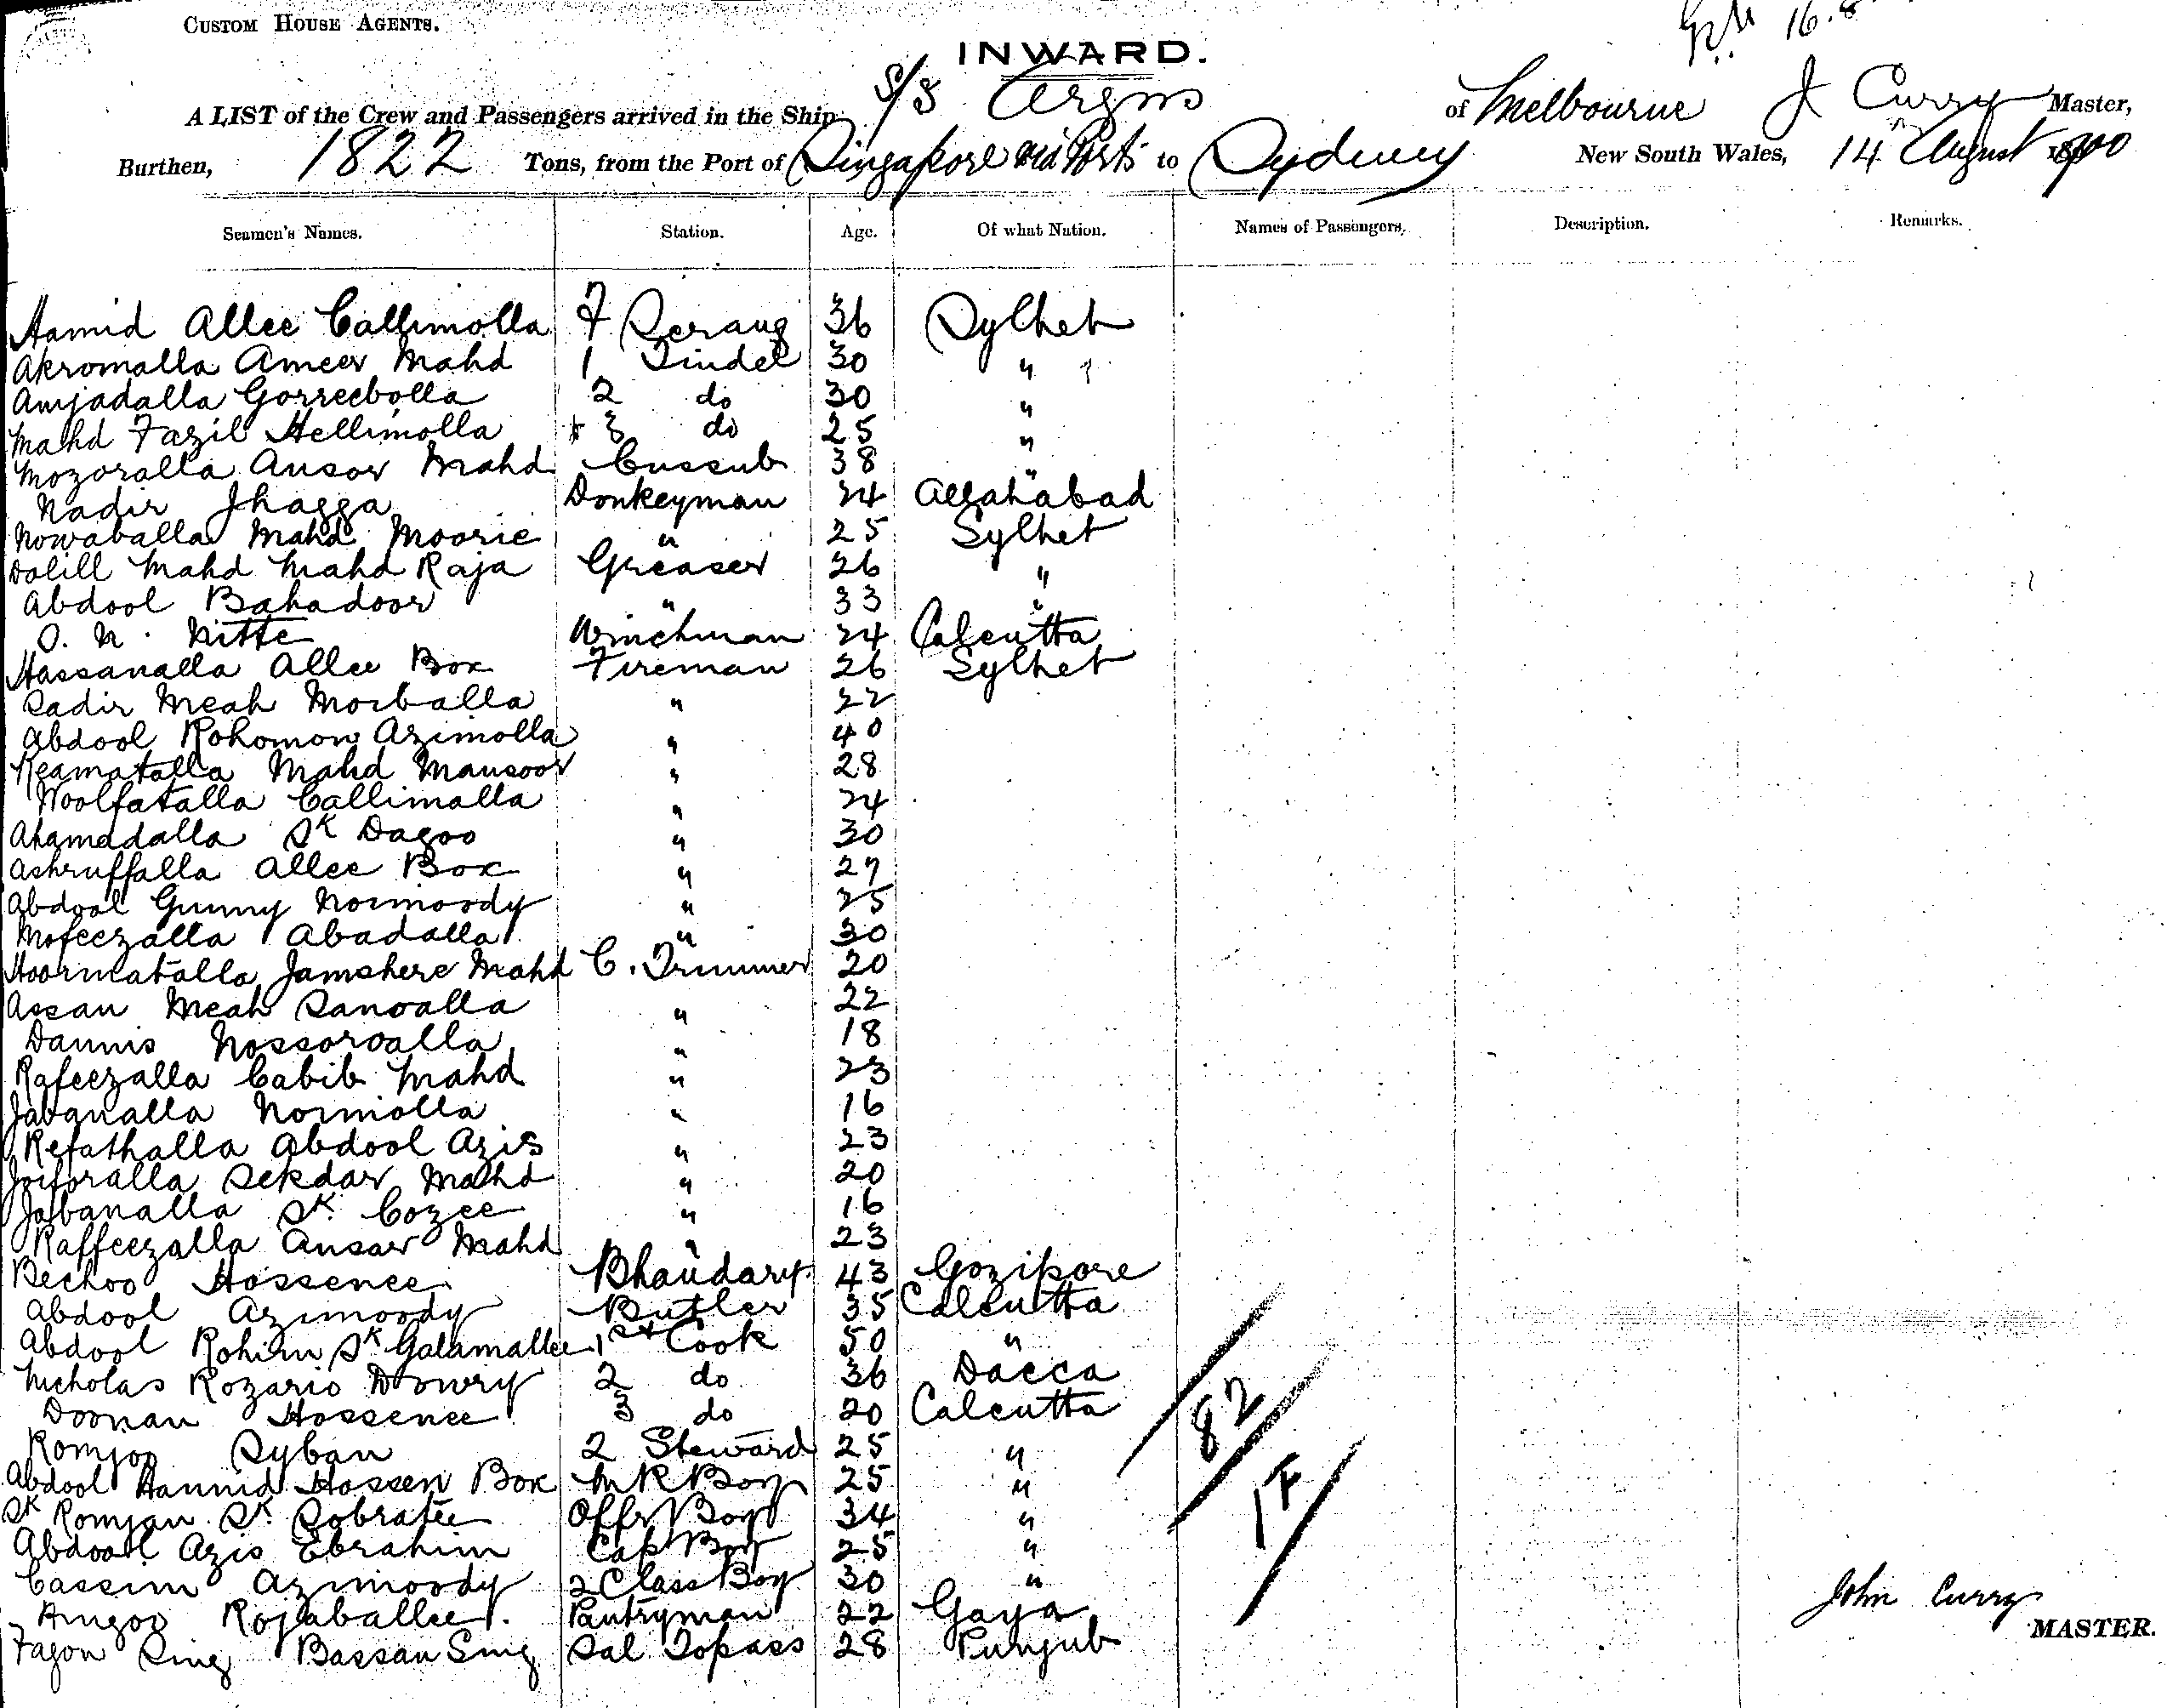 CUSTOM HOUSE AGENTS.
16.8
INWARD.
A LIST of the Crew and Passengers arrived in the Ship S/S Argus of Melbourne J Curry Master,
Burthen, 1822 Tons, from the Port of Singapore via Ports to Sydney New South Wales, 14 August 1900
Seamen's Names. Station. Age. Of what Nation. Names of Passengers. Description. Remarks.
Hamid Allee Callimolla F Serang 36 Sylhet
Akromalla Ameer Mahd 1 Tindel 30 "
Amjadalla Gorreebolla 2 do 30 "
Mahd Fazil Hellimolla 3 do 25 "
Mozoralla Ansor Mahd Cussub 38 "
Nadir Jhagga Donkeyman 24 Allahabad
Nowaballa Mahd Moorie " 25 Sylhet
Dolill Mahd Mahd Raja Greaser 26 "
Abdool Bahadoor " 33 "
O. N. Nitte Winchman 24 Calcutta
Hassanalla Allee Box Fireman 26 Sylhet
Sadir Meah Morballa " 22
Abdool Rohomon Azimolla " 40
Keamatalla Mahd Mansoor " 28
Woolfatalla Callimalla " 24
Ahamadalla Sk Dagoo " 30
Ashruffalla Allee Box " 27
Abdool Gunny Normoody " 25
Mofeezalla Abadalla " 30
Hoormatalla Jamshere Mahd C. Trimmer 20
Assan Meah Sanoalla " 22
Dannis Nossoroalla " 18
Rafeezalla Cabib Mahd " 23
Jabanalla Normolla " 16
Refathalla Abdool Azis " 23
Joiforalla Sekdar Mahd " 20
Jabanalla Sk. Cozee " 16
Raffeezalla Ansar Mahd " 23
Bechoo Hossenee Bhandary 43 Gozipore
Abdool Azimoody Butler 35 Calcutta
Abdool Rohim Sk Galamallee 1st Cook 50 "
Nicholas Rozario Dowry 2 do 36 Dacca
Doonan Hossenee 3 do 20 Calcutta
Romjoo Syban 2 Steward 25 "
Abdool Hannid Hossen Box M R Boy 25 "
Sk Romjan Sk. Sobratee Offr Boy 34 "
Abdool Azis Ebrahim Cap Boy 25 "
Cassim Azimoody 2 Class Boy 30 "
Angoo Rojaballee. Pantryman 22 Gaya
Fagon Sing Bassan Sing Sal Topass 28 Punjub
82
1F
John Curry
MASTER.